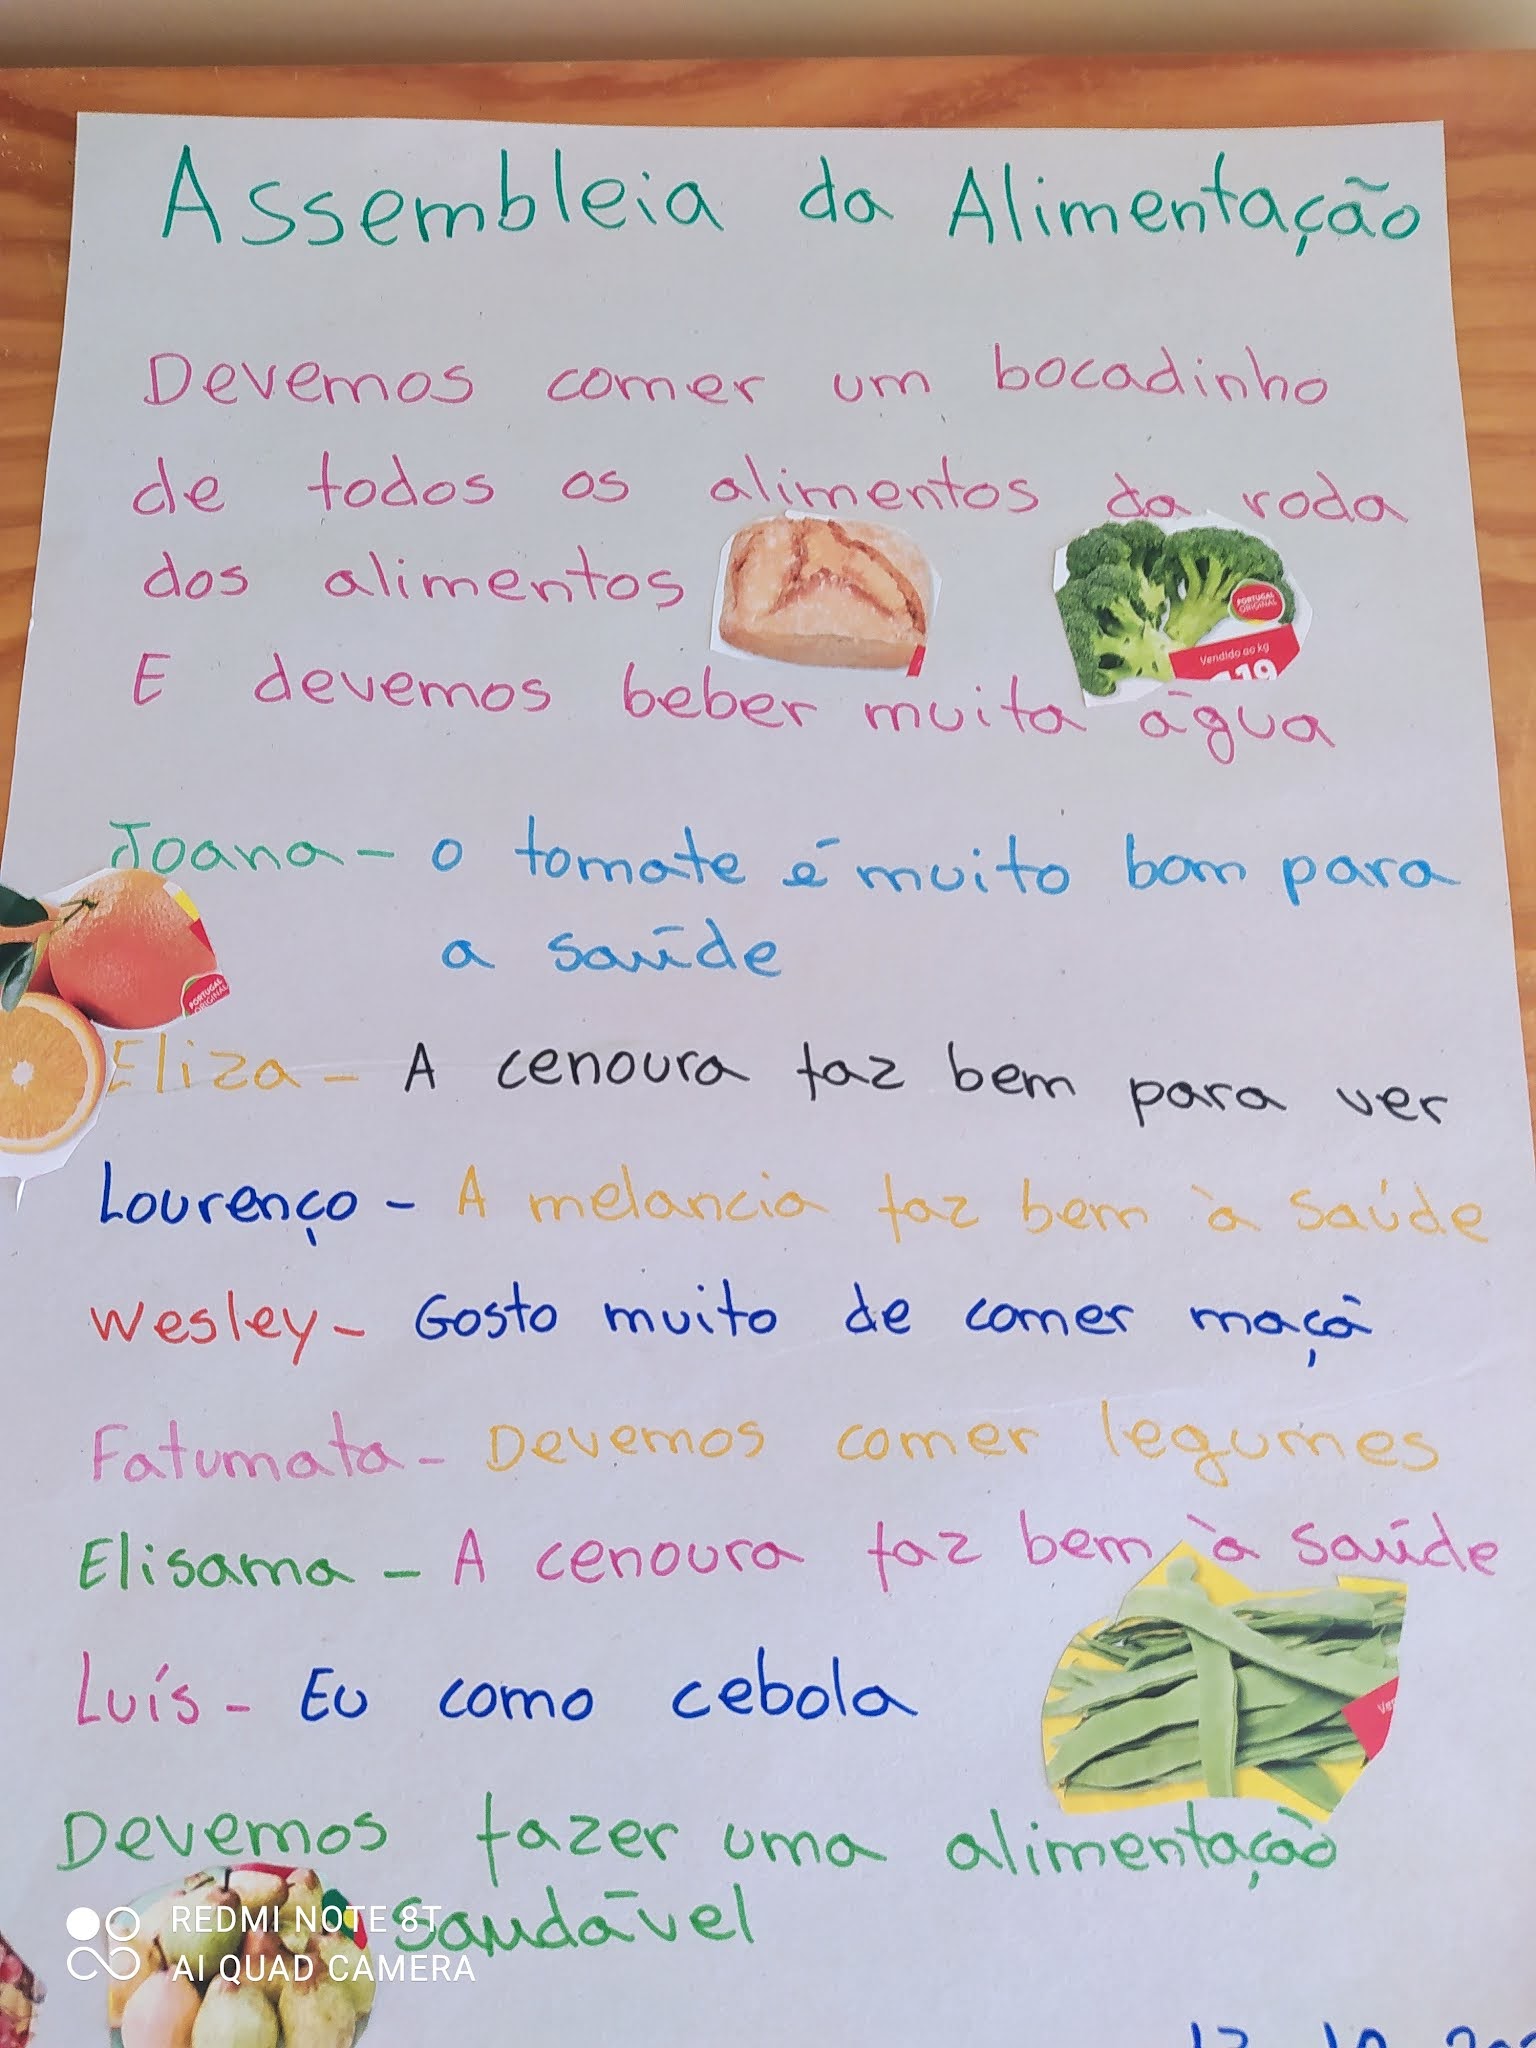 Assembleia da Alimentação
Devemos comer um bocadinho
de todos os alimentos da roda
dos alimentos
PORTUGAL ORIGINAL
Vendido ao kg
19
E devemos beber muita água
Joana - o tomate é muito bom para
a saúde
PORTUGAL ORIGINAL
Eliza - A cenoura faz bem para ver
Lourenço - A melancia faz bem à saúde
Wesley - Gosto muito de comer maçã
Fatumata - Devemos comer legumes
Elisama - A cenoura faz bem à saúde
Luís - Eu como cebola
Devemos fazer uma alimentação
saudável
REDMI NOTE 8T
AI QUAD CAMERA